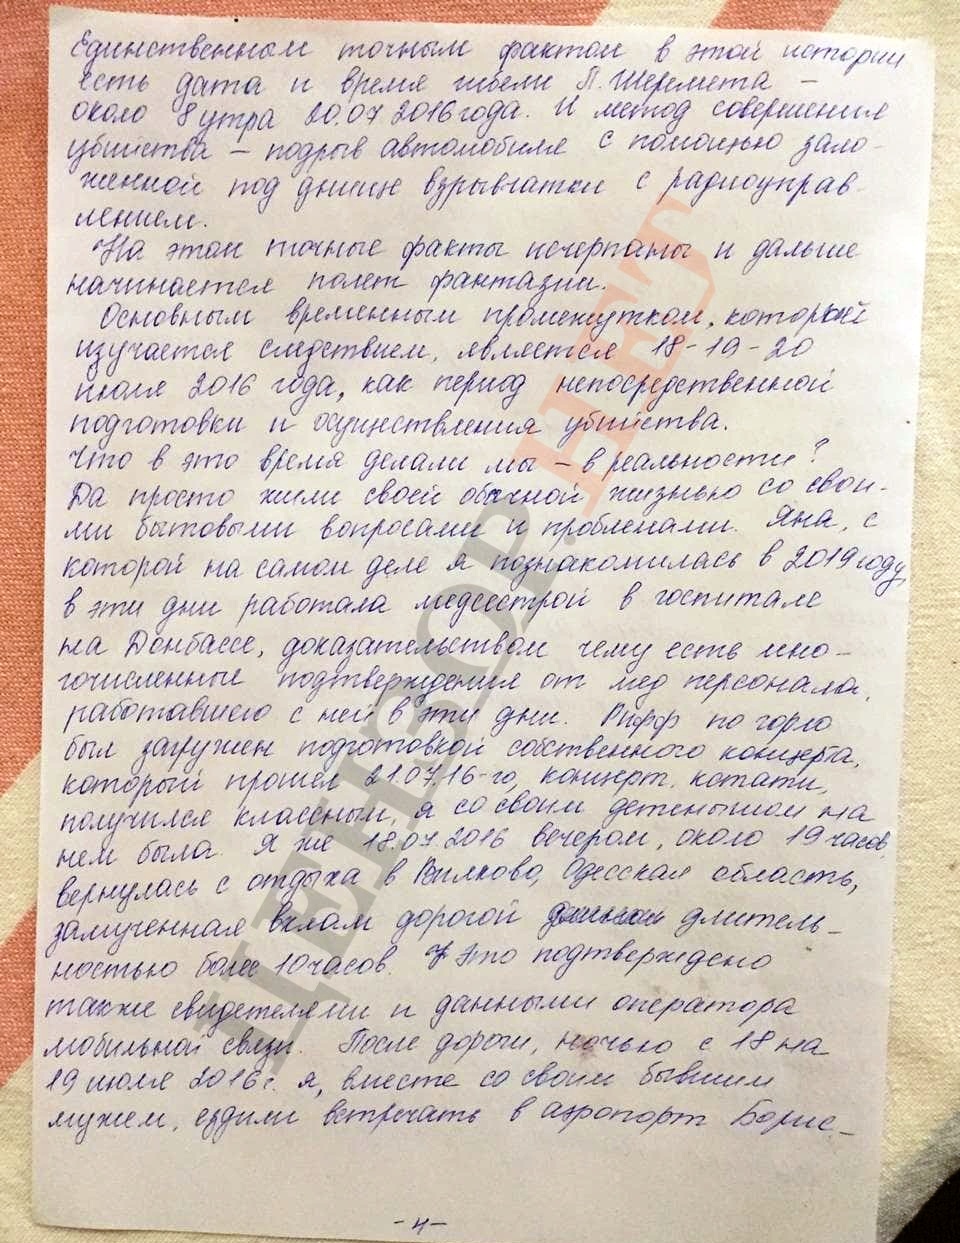 Единственным точным фактом в этой истории
есть дата и время гибели П. Шеремета –
около 8 утра 20.07.2016 года. И метод совершения
убийства – подрыв автомобиля с помощью зало-
женной под днище взрывчатки с радиоуправ-
лением.
На этом точные факты исчерпаны и дальше
начинается полет фантазии.
Основным временным промежутком, который
изучается следствием, является 18-19-20
июля 2016 года, как период непосредственной
подготовки и осуществления убийства.
Что в это время делали мы – в реальности?
Да просто жили своей обычной жизнью со свои-
ми бытовыми вопросами и проблемами. Яна, с
которой на самом деле я познакомилась в 2019 году,
в эти дни работала медсестрой в госпитале
на Донбассе, доказательством чему есть мно-
гочисленные подтверждения от мед персонала,
работавшего с ней в эти дни. Рифф по горло
был загружен подготовкой собственного концерта,
который прошел 21.07.16-го, концерт, кстати,
получился классным, я со своим детенышом на
нем была. Я же 18.07.2016 вечером, около 19 часов,
вернулась с отдыха в Вилково, Одесская область,
замученная вхлам дорогой длитель-
ностью более 10 часов. Это подтверждено
также свидетелями и данными оператора
мобильной связи. После дороги, ночью с 18 на
19 июля 2016 г. я, вместе со своим бывшим
мужем, ездили встречать в аэропорт Борис-
-4-
ЦЕНЗОР.НЕТ